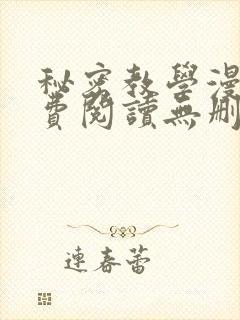 秘密教學漫
費閱讀無刪
連春蕾